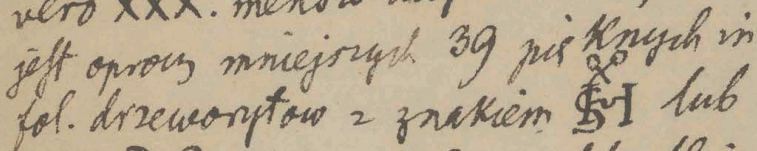 vero XXX.
jest oprocz mniejszych 39 pięknych in
fol. drzeworytow z znakiem lub